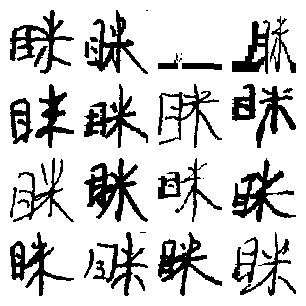 眯眯眯
眯眯眯眯
眯眯眯眯
眯眯眯眯